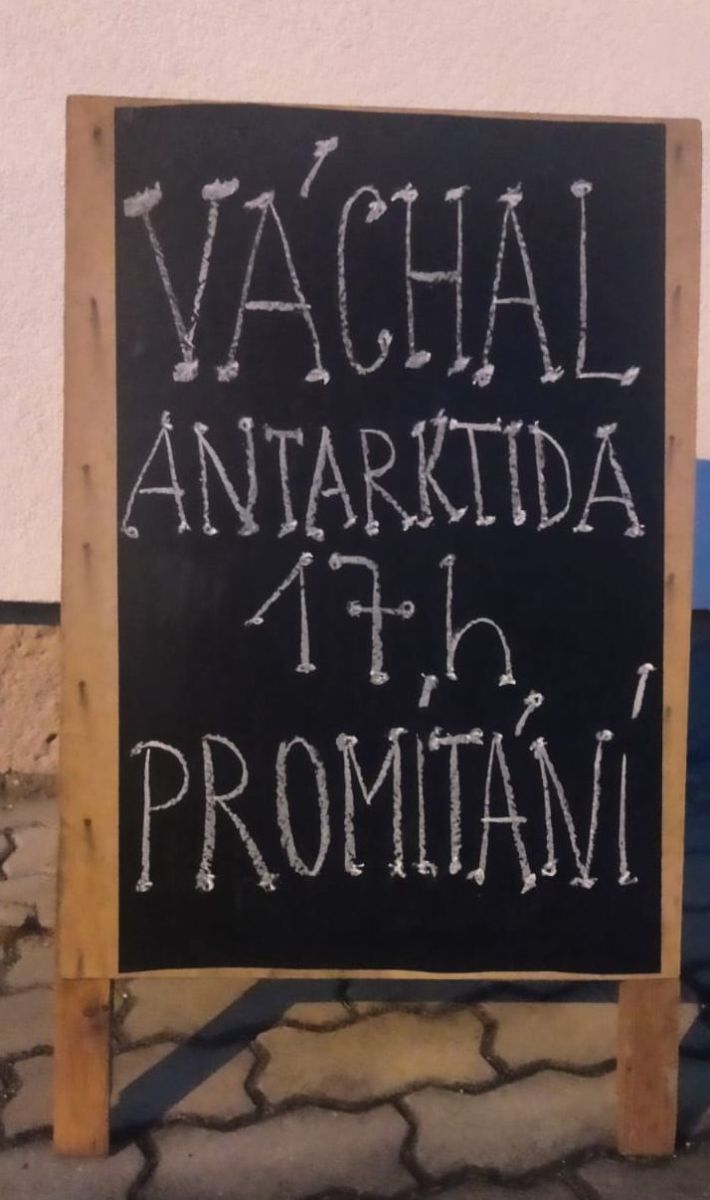 VÁCHAL
ANTARKTIDA
17h
PROMÍTÁNÍ